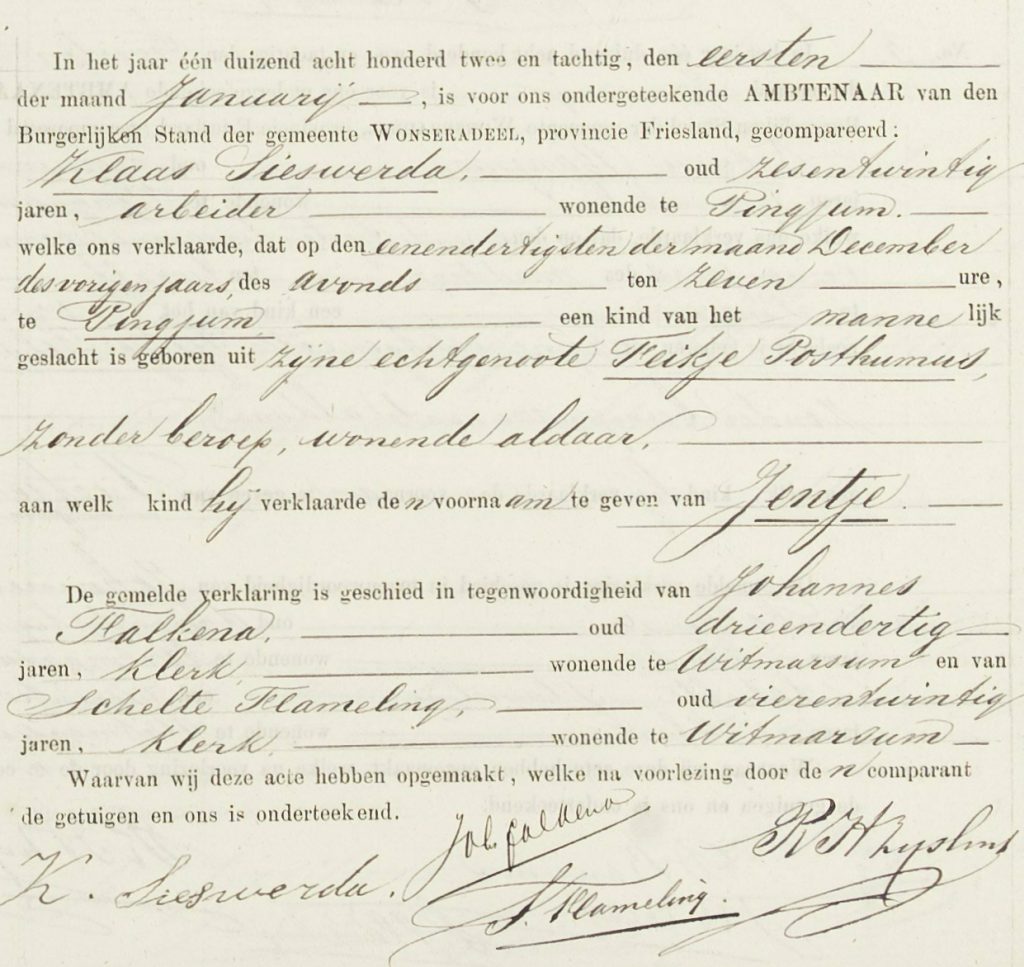 In het jaar één duizend acht honderd twee en tachtig, den eersten
der maand Januarij, is voor ons ondergeteekende AMBTENAAR van den
Burgerlijken Stand der gemeente WONSERADEEL, provincie Friesland, gecompareerd:
Klaas Sieswerda, oud zesentwintig
jaren, arbeider wonende te Pingjum.
welke ons verklaarde, dat op den eenendertigsten der maand December
des vorigen jaars, des avonds ten zeven ure,
te Pingjum een kind van het manne lijk
geslacht is geboren uit zijne echtgenoote Feikje Posthumus,
zonder beroep, wonende aldaar,
aan welk kind hij verklaarde den voornaam te geven van Jentje.
De gemelde verklaring is geschied in tegenwoordigheid van Johannes
Falkena, oud drieendertig
jaren, klerk, wonende te Witmarsum en van
Schelte Flameling, oud vierentwintig
jaren, klerk, wonende te Witmarsum
Waarvan wij deze acte hebben opgemaakt, welke na voorlezing door den comparant
de getuigen en ons is onderteekend.
Joh. Falkena
K. Sieswerda.
S. Flameling.